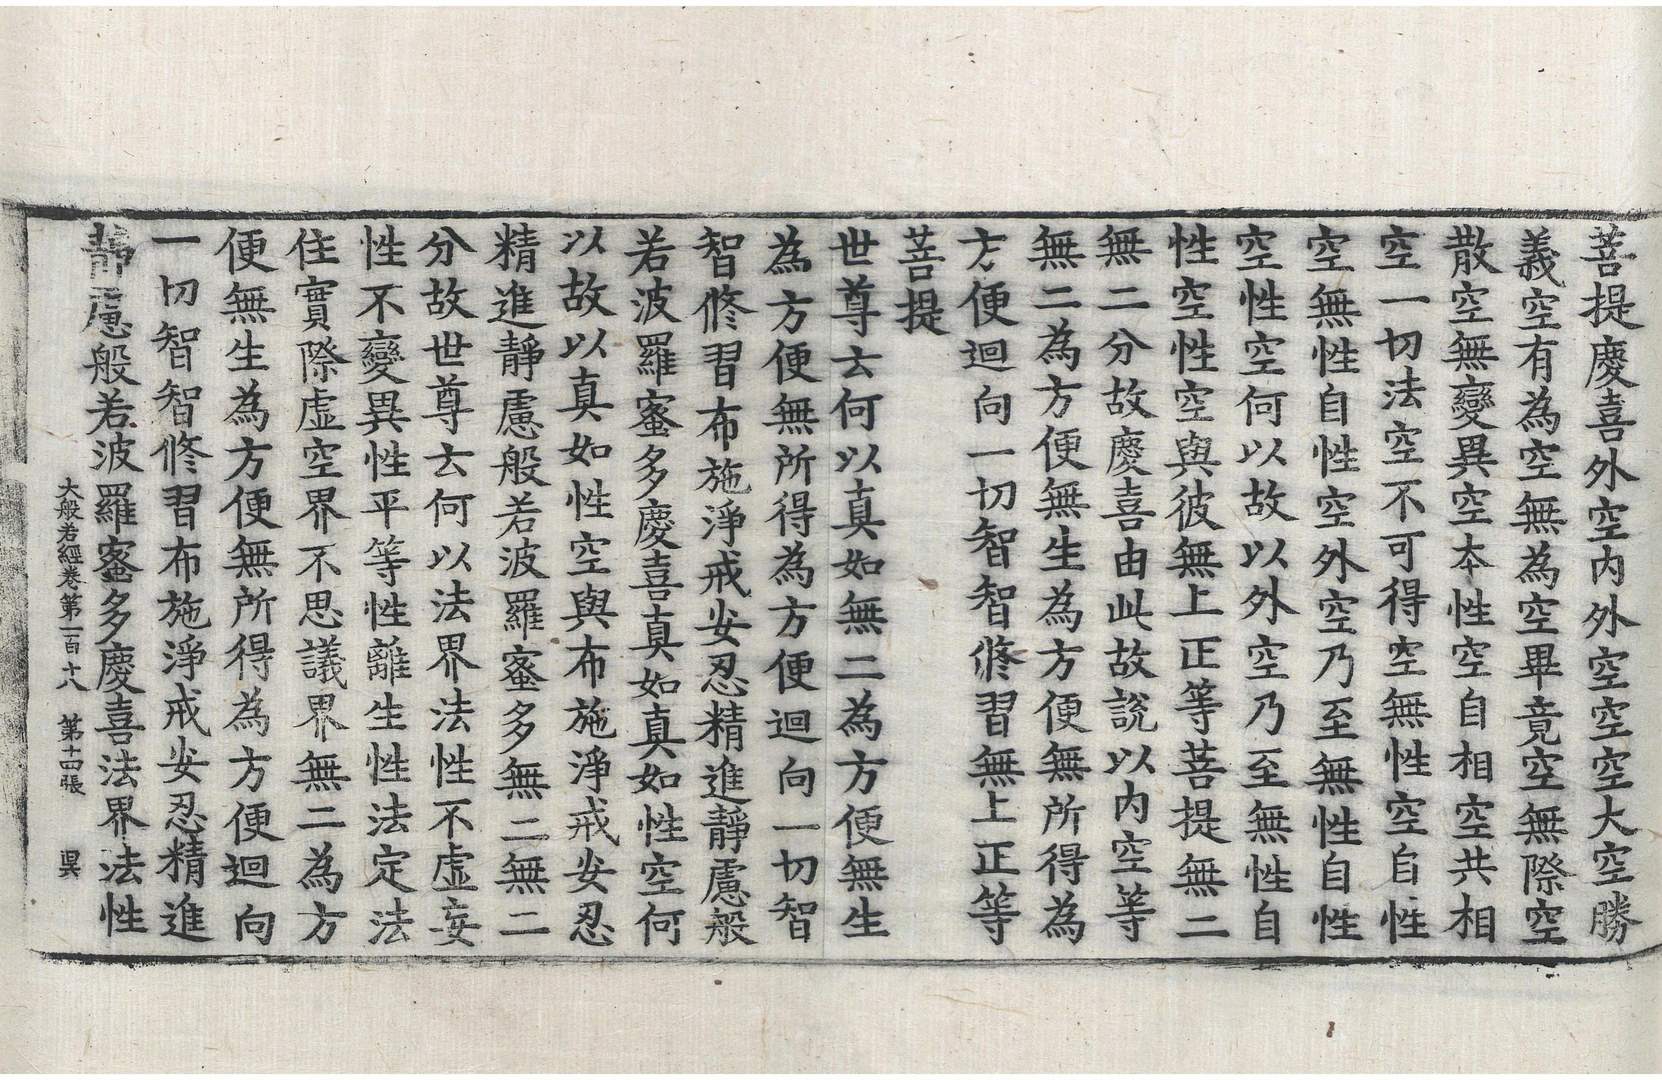 菩提慶喜外空內外空空空大空勝
義空有為空無為空畢竟空無際空
散空無變異空本性空自相空共相
空一切法空不可得空無性空自性
空無性自性空外空乃至無性自性
空性空何以故以外空乃至無性自
性空性空與彼無上正等菩提無二
無二分故慶喜由此故說以內空等
無二為方便無生為方便無所得為
方便迴向一切智智修習無上正等
菩提
世尊云何以真如無二為方便無生
為方便無所得為方便迴向一切智
智修習布施淨戒安忍精進靜慮般
若波羅蜜多慶喜真如真如性空何
以故以真如性空與布施淨戒安忍
精進靜慮般若波羅蜜多無二無二
分故世尊云何以法界法性不虛妄
性不變異性平等性離生性法定法
住實際虛空界不思議界無二為方
便無生為方便無所得為方便迴向
一切智智修習布施淨戒安忍精進
靜慮般若波羅蜜多慶喜法界法性
大般若經卷第一百十八 第十四張 昃